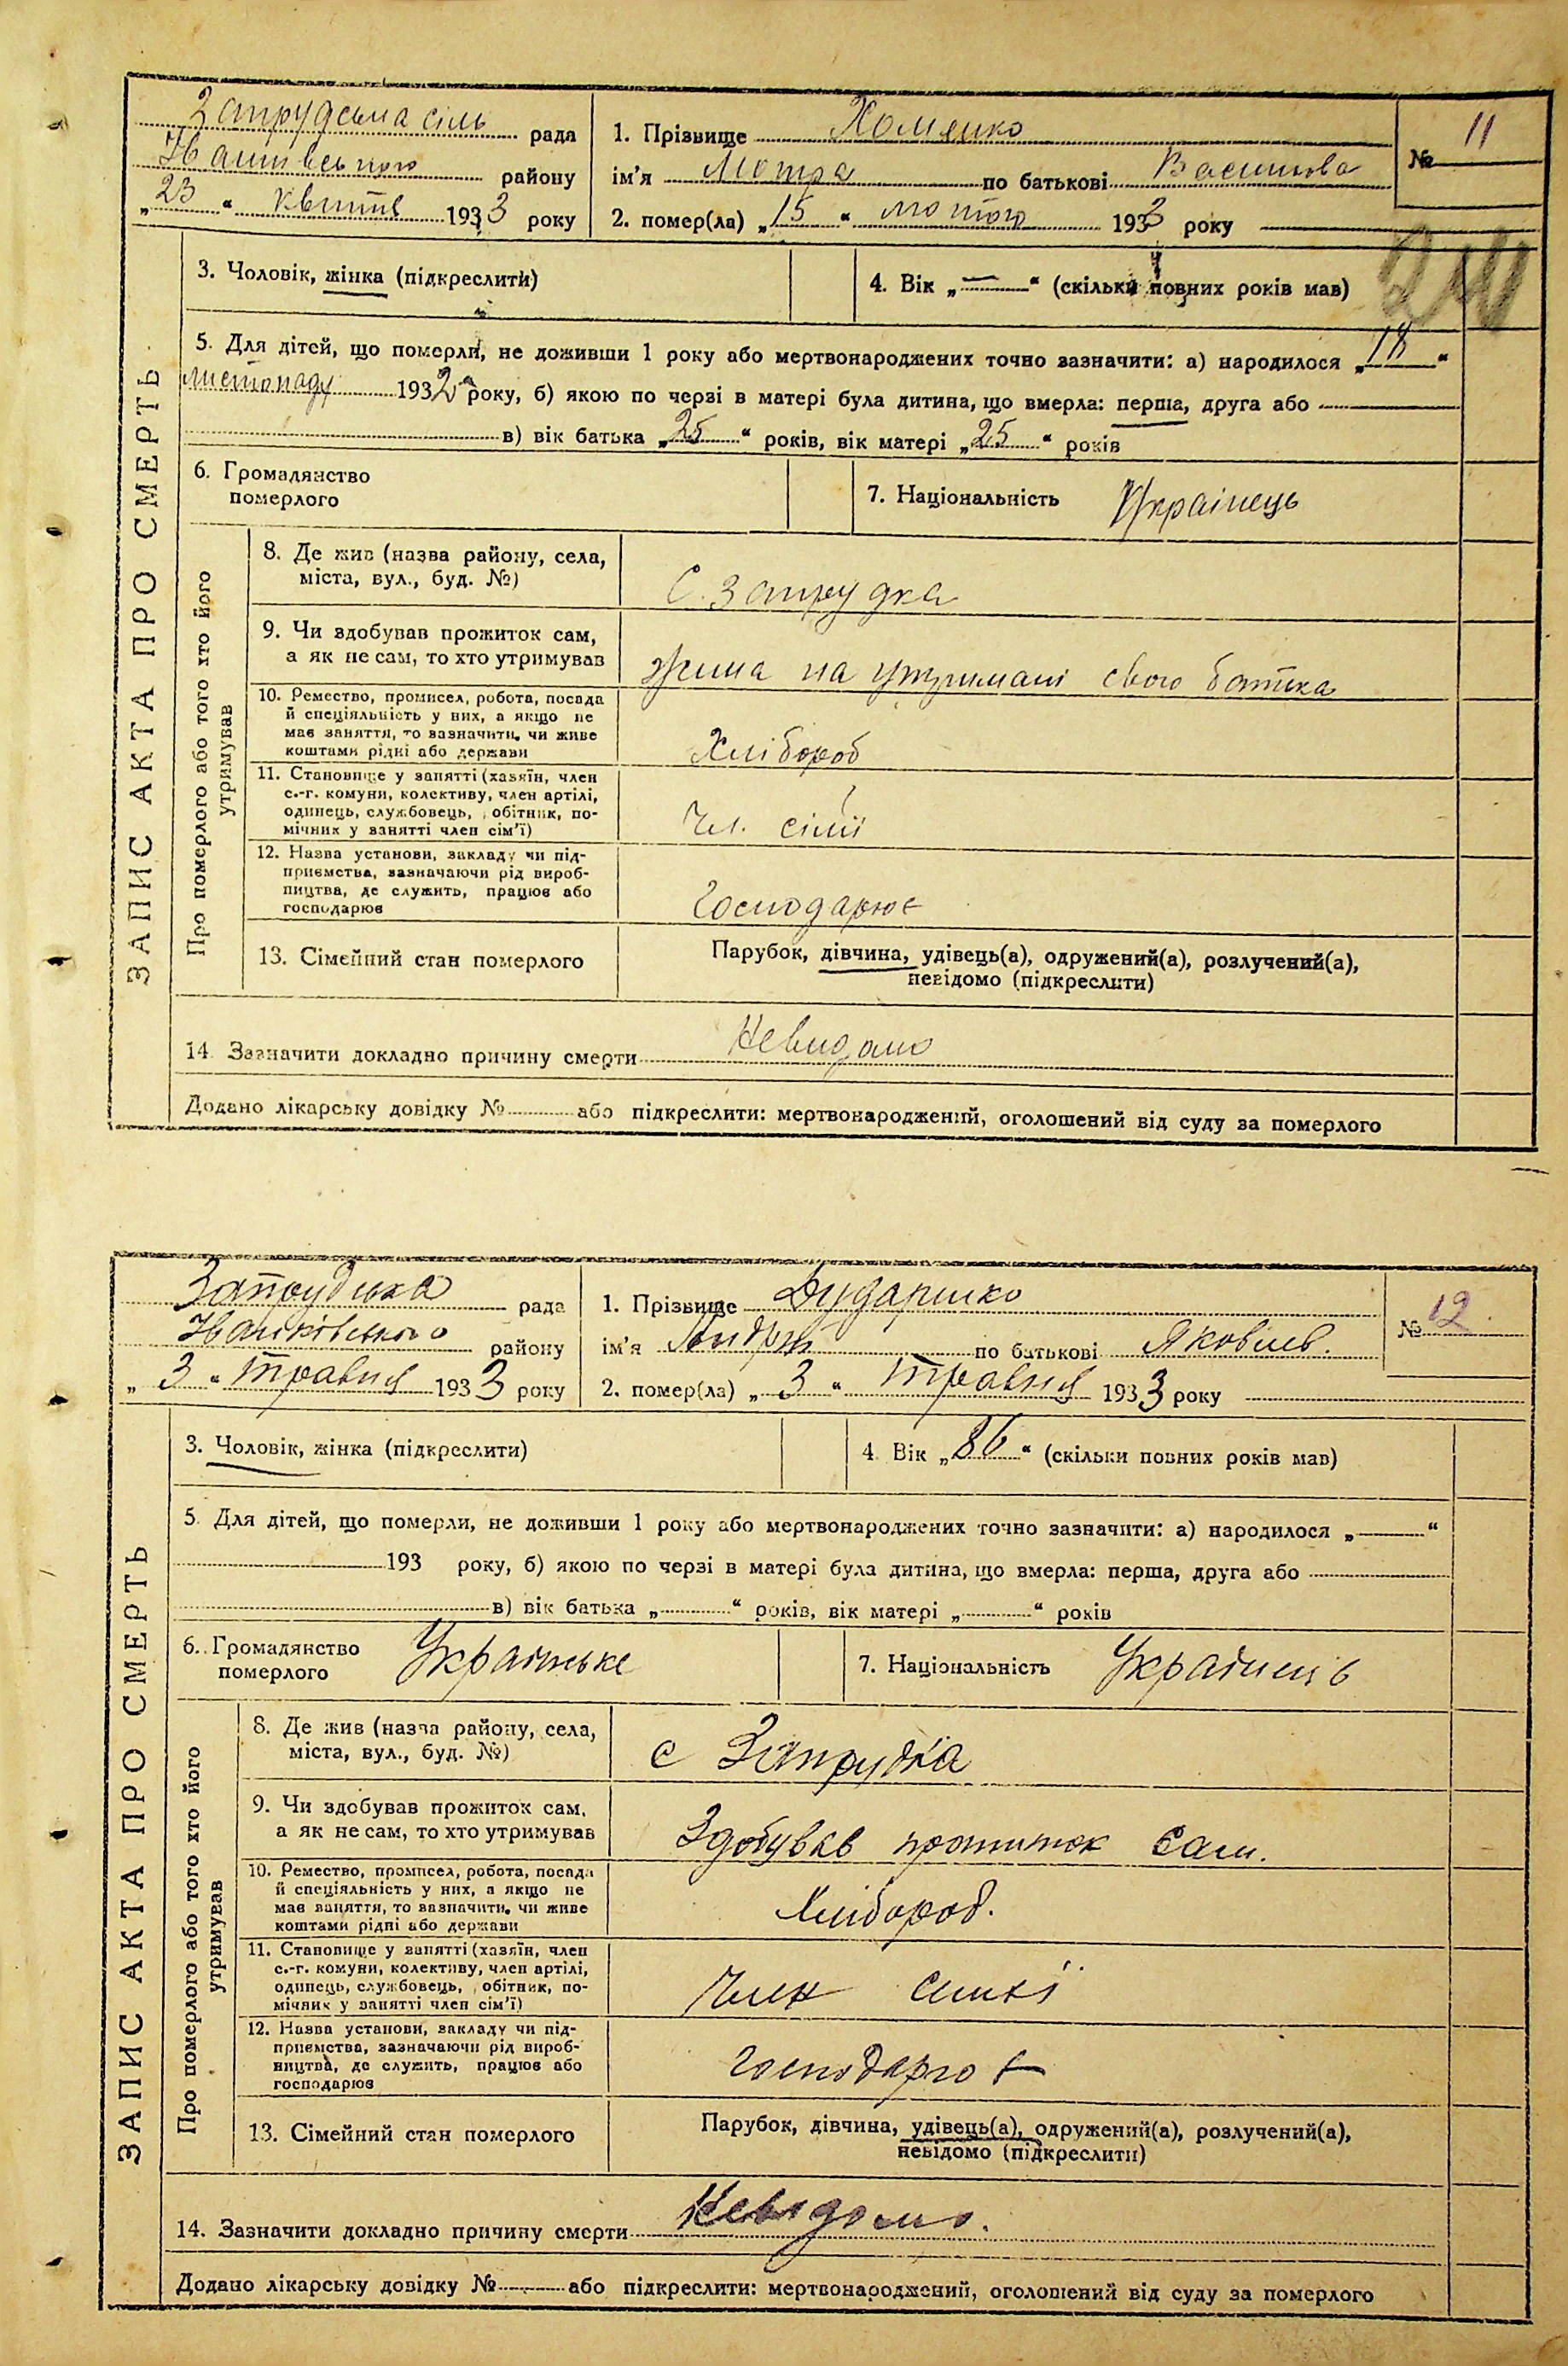 Запрудська сіль рада
району
„23“ квітня 1933 року
1. Прізвище Хоменко
ім’я Мотря по батькові Василівна
2. помер(ла) „15“ лютого 1933 року
№ 11
3. Чоловік, жінка (підкреслити)
4. Вік „—“ (скільки повних років мав)
5. Для дітей, що померли, не доживши 1 року або мертвонароджених точно зазначити: а) народилося „18“
листопаду 1932 року, б) якою по черзі в матері була дитина, що вмерла: перша, друга або
в) вік батька „25“ років, вік матері „25“ років
6. Громадянство
померлого
7. Національність Українець
ЗАПИС АКТА ПРО СМЕРТЬ
Про померлого або того хто його
утримував
8. Де жив (назва району, села,
міста, вул., буд. №)
С. Запрудка
9. Чи здобував прожиток сам,
а як не сам, то хто утримував
жила на утримані свого батька
10. Ремество, промисел, робота, посада
й спеціяльність у них, а якщо не
має заняття, то зазначити, чи живе
коштами рідні або держави
Хлібороб
11. Становище у занятті (хазяїн, член
с.-г. комуни, колективу, член артілі,
одинець, службовець, обітник, по-
мічник у занятті член сім’ї)
Чл. сімії
12. Назва установи, закладу чи під-
приємства, зазначаючи рід вироб-
ництва, де служить, працює або
господарює
Господарює
13. Сімейний стан померлого
Парубок, дівчина, удівець(а), одружений(а), розлучений(а),
невідомо (підкреслити)
14. Зазначити докладно причину смерти Невидомо
Додано лікарську довідку № або підкреслити: мертвонароджений, оголошений від суду за померлого
Запрудська рада
району
„3“ травня 1933 року
1. Прізвище Дударенко
ім’я по батькові Яковлев.
2. помер(ла) „3“ травня 1933 року
№ 12
3. Чоловік, жінка (підкреслити)
4. Вік „86“ (скільки повних років мав)
5. Для дітей, що померли, не доживши 1 року або мертвонароджених точно зазначити: а) народилося „—“
193 року, б) якою по черзі в матері була дитина, що вмерла: перша, друга або
в) вік батька „ “ років, вік матері „ “ років
6. Громадянство
померлого
Украінське
7. Національність Українець
ЗАПИС АКТА ПРО СМЕРТЬ
Про померлого або того хто його
утримував
8. Де жив (назва району, села,
міста, вул., буд. №)
с Запрудка
9. Чи здобував прожиток сам,
а як не сам, то хто утримував
Здобував прожиток сам.
10. Ремество, промисел, робота, посада
й спеціяльність у них, а якщо не
має заняття, то зазначити, чи живе
коштами рідні або держави
Хлібороб.
11. Становище у занятті (хазяїн, член
с.-г. комуни, колективу, член артілі,
одинець, службовець, обітник, по-
мічник у занятті член сім’ї)
Член
12. Назва установи, закладу чи під-
приємства, зазначаючи рід вироб-
ництва, де служить, працює або
господарює
господарює
13. Сімейний стан померлого
Парубок, дівчина, удівець(а), одружений(а), розлучений(а),
невідомо (підкреслити)
14. Зазначити докладно причину смерти Невідомо.
Додано лікарську довідку № або підкреслити: мертвонароджений, оголошений від суду за померлого